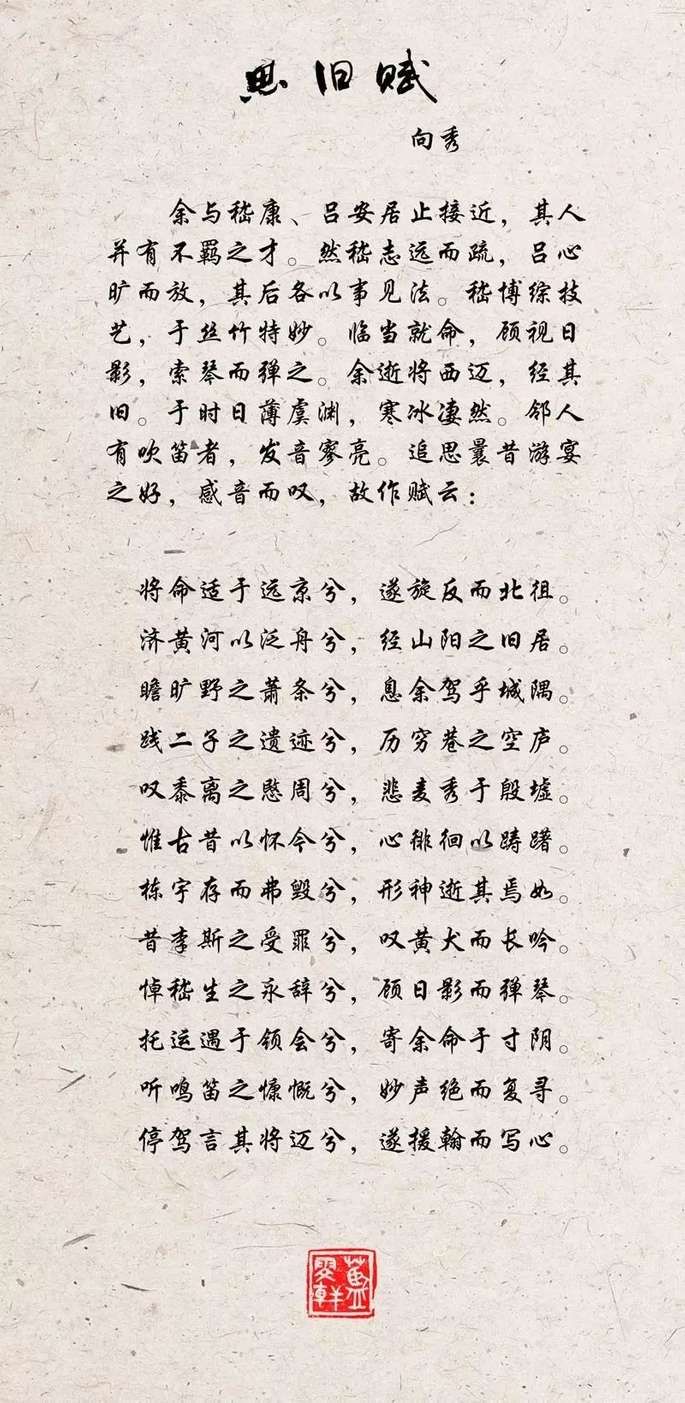 思旧赋
向秀
余与嵇康、吕安居止接近，其人
并有不羁之才。然嵇志远而疏，吕心
旷而放，其后各以事见法。嵇博综技
艺，于丝竹特妙。临当就命，顾视日
影，索琴而弹之。余逝将西迈，经其
旧。于时日薄虞渊，寒冰凄然。邻人
有吹笛者，发音寥亮。追思曩昔游宴
之好，感音而叹，故作赋云：
将命适于远京兮，遂旋反而北徂。
济黄河以泛舟兮，经山阳之旧居。
瞻旷野之萧条兮，息余驾乎城隅。
践二子之遗迹兮，历穷巷之空庐。
叹黍离之愍周兮，悲麦秀于殷墟。
惟古昔以怀今兮，心徘徊以踌躇。
栋宇存而弗毁兮，形神逝其焉如。
昔李斯之受罪兮，叹黄犬而长吟。
悼嵇生之永辞兮，顾日影而弹琴。
托运遇于领会兮，寄余命于寸阴。
听鸣笛之慷慨兮，妙声绝而复寻。
停驾言其将迈兮，遂援翰而写心。